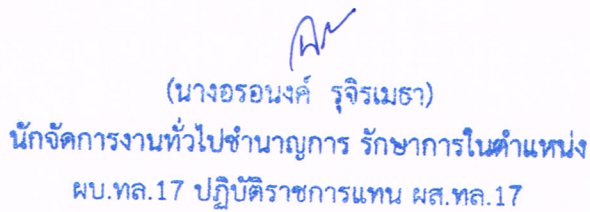 (นางอรอนงค์ รุจิรเมธา)
นักจัดการงานทั่วไปชำนาญการ รักษาการในตำแหน่ง
ผบ.ทล.17 ปฏิบัติราชการแทน ผส.ทล.17